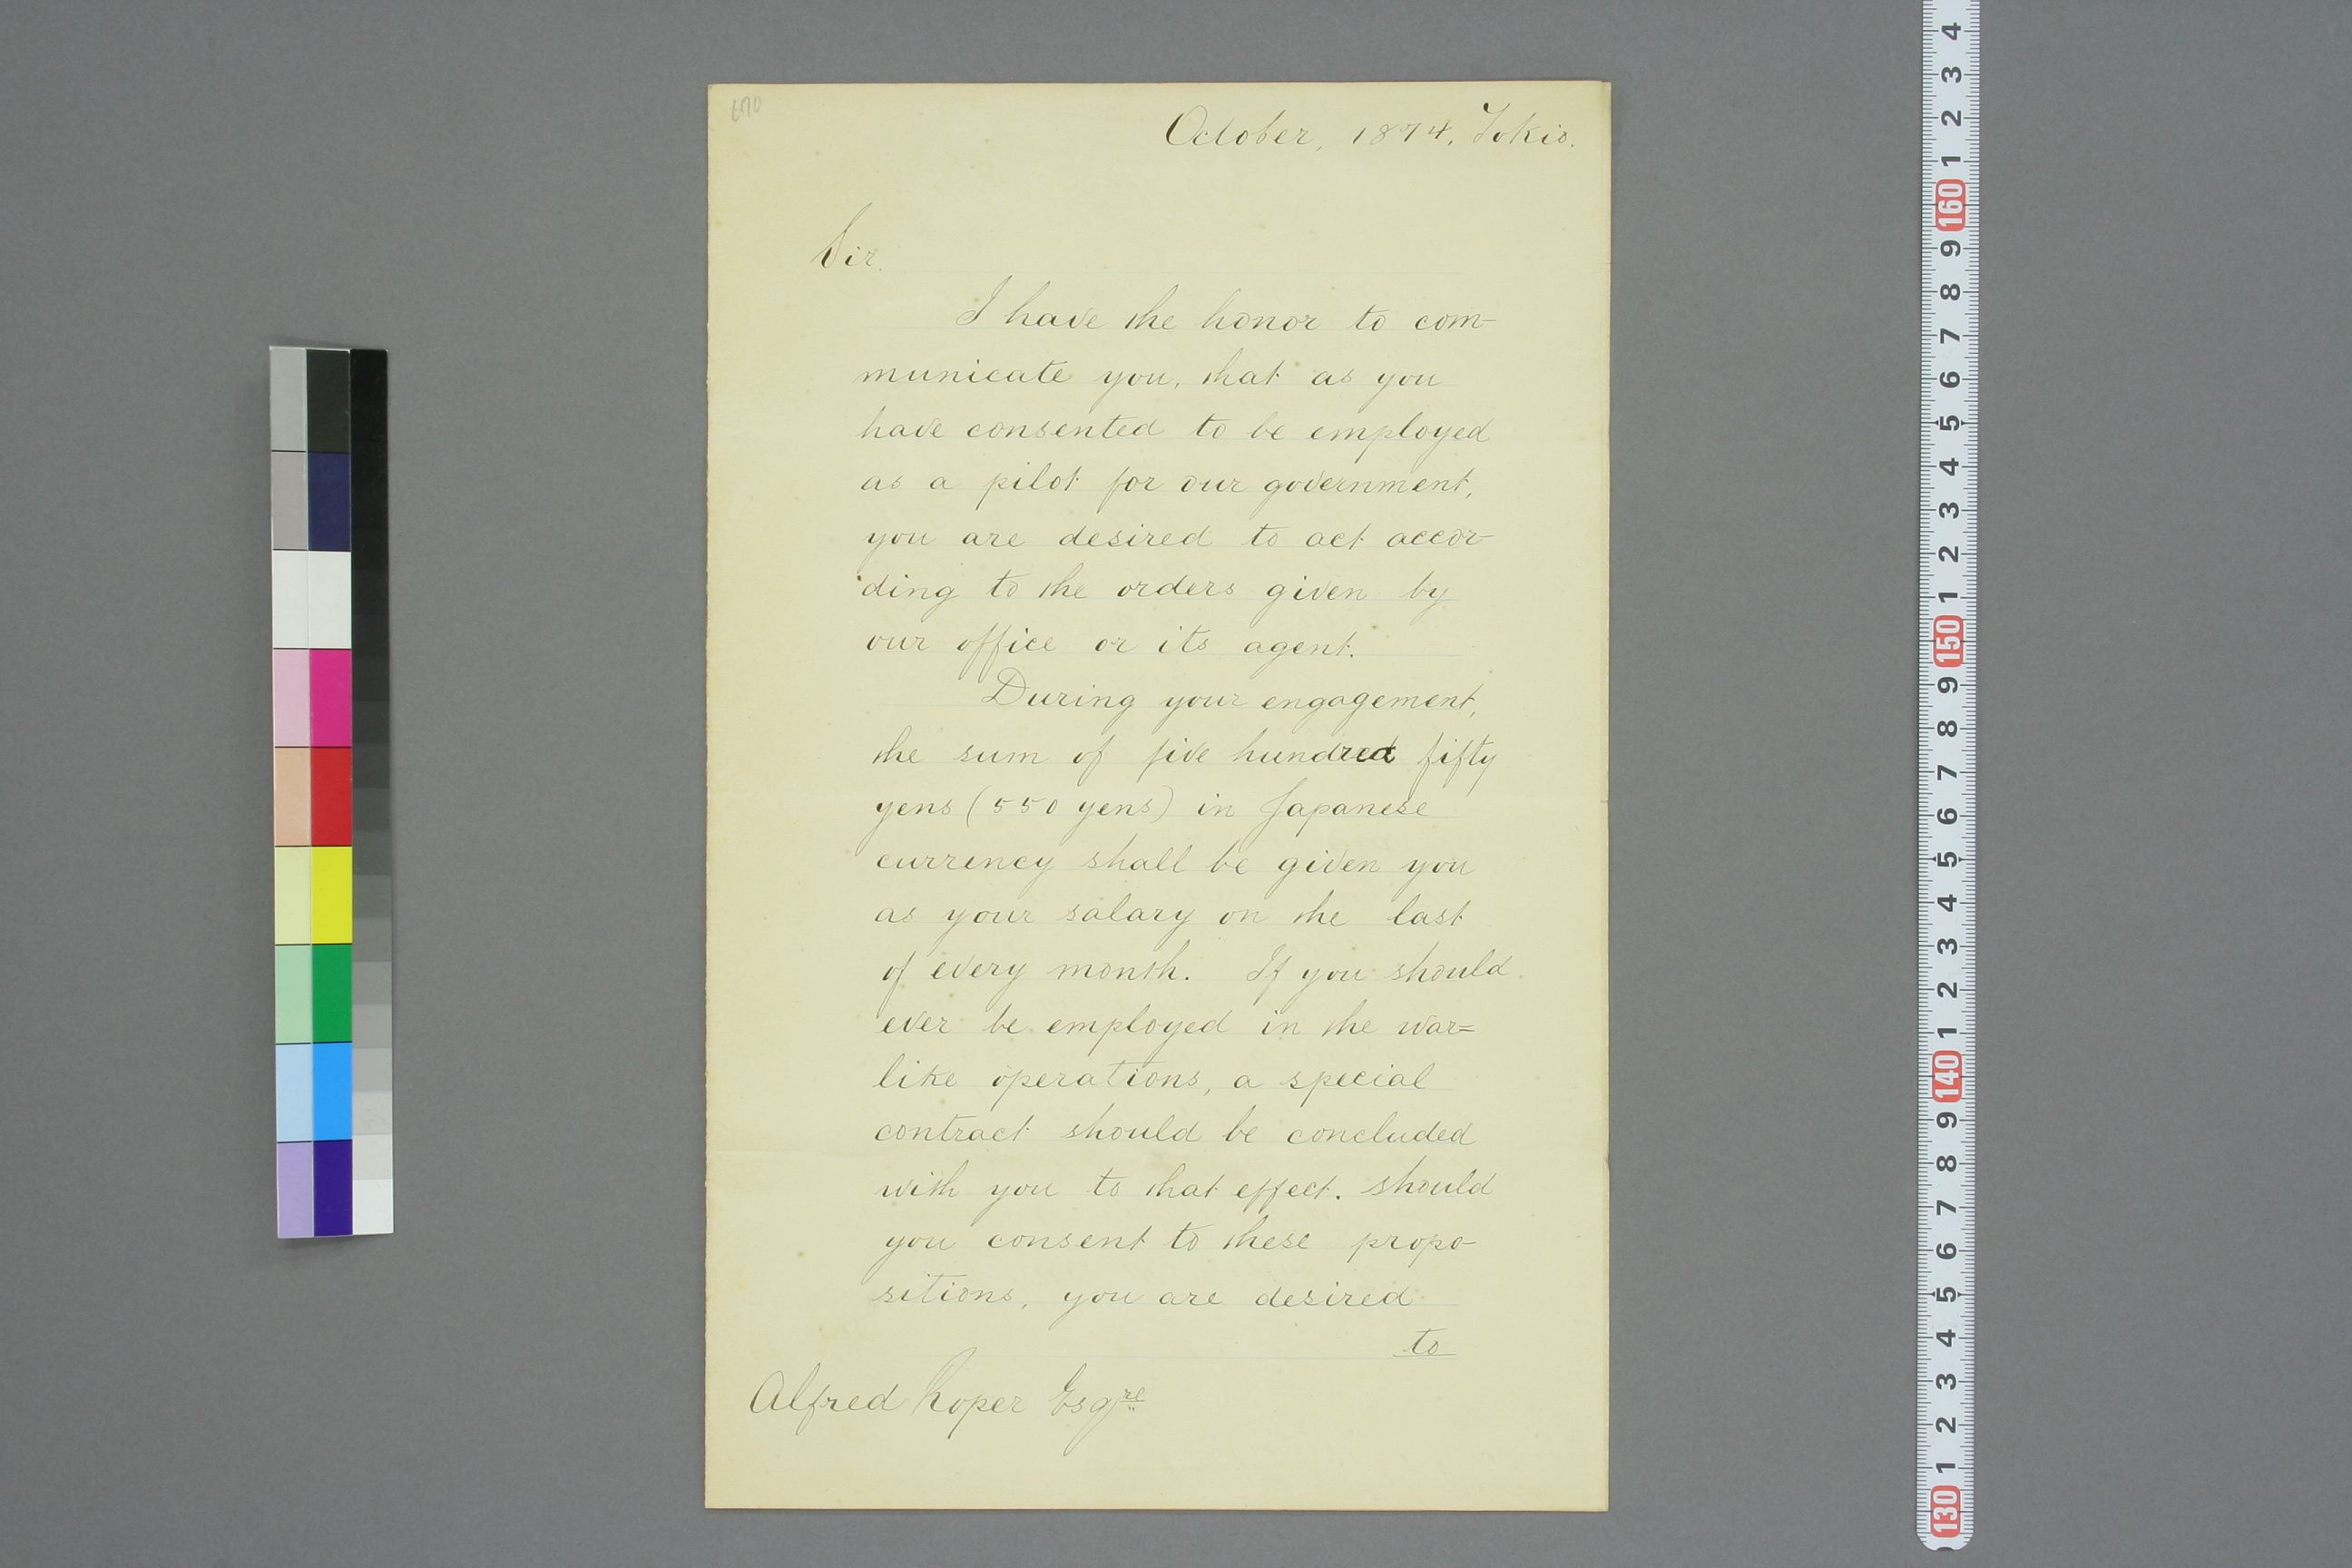 670
October, 1874. Tokio.
Sir.
I have the honor to com-
municate you, that as you
have consented to be employed
as a pilot for our government,
you are desired to act accor-
ding to the orders given by
our office or its agent.
During your engagement,
the sum of five hundred fifty
yens (550 yens) in Japanese
currency shall be given you
as your salary on the last
of every month. If you should
ever be employed in the war=
like operations, a special
contract should be concluded
with you to that effect. should
you consent to these propo-
sitions, you are desired
to
Alfred Roper Esqre
4
3
2
1
160
9
8
7
6
5
4
3
2
1
150
9
8
7
6
5
4
3
2
1
140
9
8
7
6
5
4
3
2
1
130